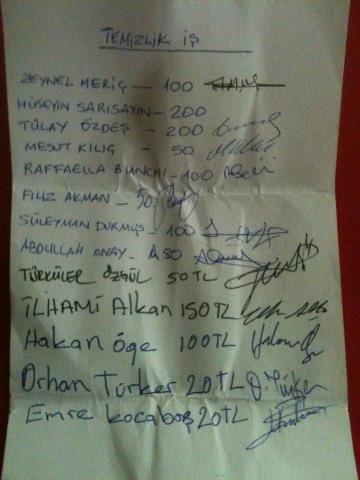 TEMİZLİK İŞ
ZEYNEL MERİÇ - 100
HÜSEYİN SARISAYIN - 200
TÜLAY ÖZDEŞ - 200
MESUT KILIÇ - 50
RAFFAELLA BIANCHI - 100
FİLİZ AKMAN - 50
SÜLEYMAN DURMUŞ - 100
ABDULLAH ANAY - 50
TÜRKÜLER ÖZGÜL 50 TL
İLHAMİ Alkan 150 TL
Hakan Öge 100TL
Orhan Türker 20TL O. Türker
Emre kocabaş 20TL